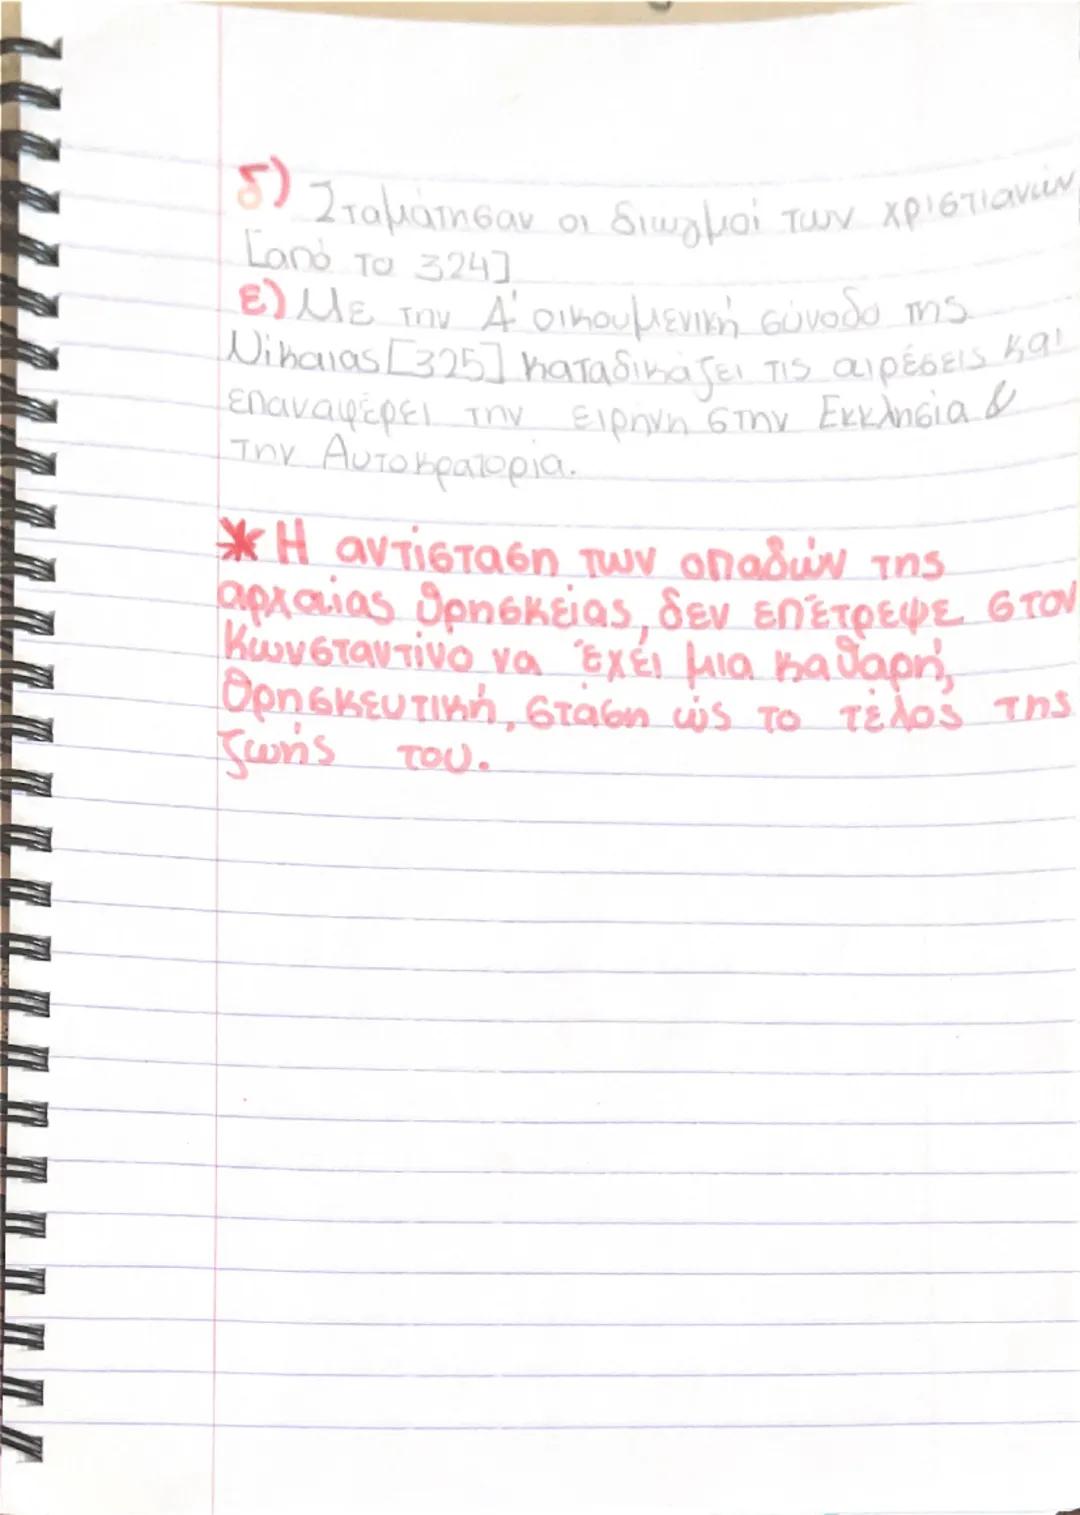 δ) Σταμάτησαν οι διωγμοί των χριστιανών
[από το 324]
ε) Με την Α' οικουμενική σύνοδο της
Νίκαιας [325] καταδικάζει τις αιρέσεις και
επαναφέρει την ειρήνη στην Εκκλησία &
την Αυτοκρατορία.
* Η αντίσταση των οπαδών της
αρχαίας θρησκείας, δεν επέτρεψε στον
Κωνσταντίνο να έχει μια καθαρή,
θρησκευτική, στάση ως το τέλος της
ζωής του.